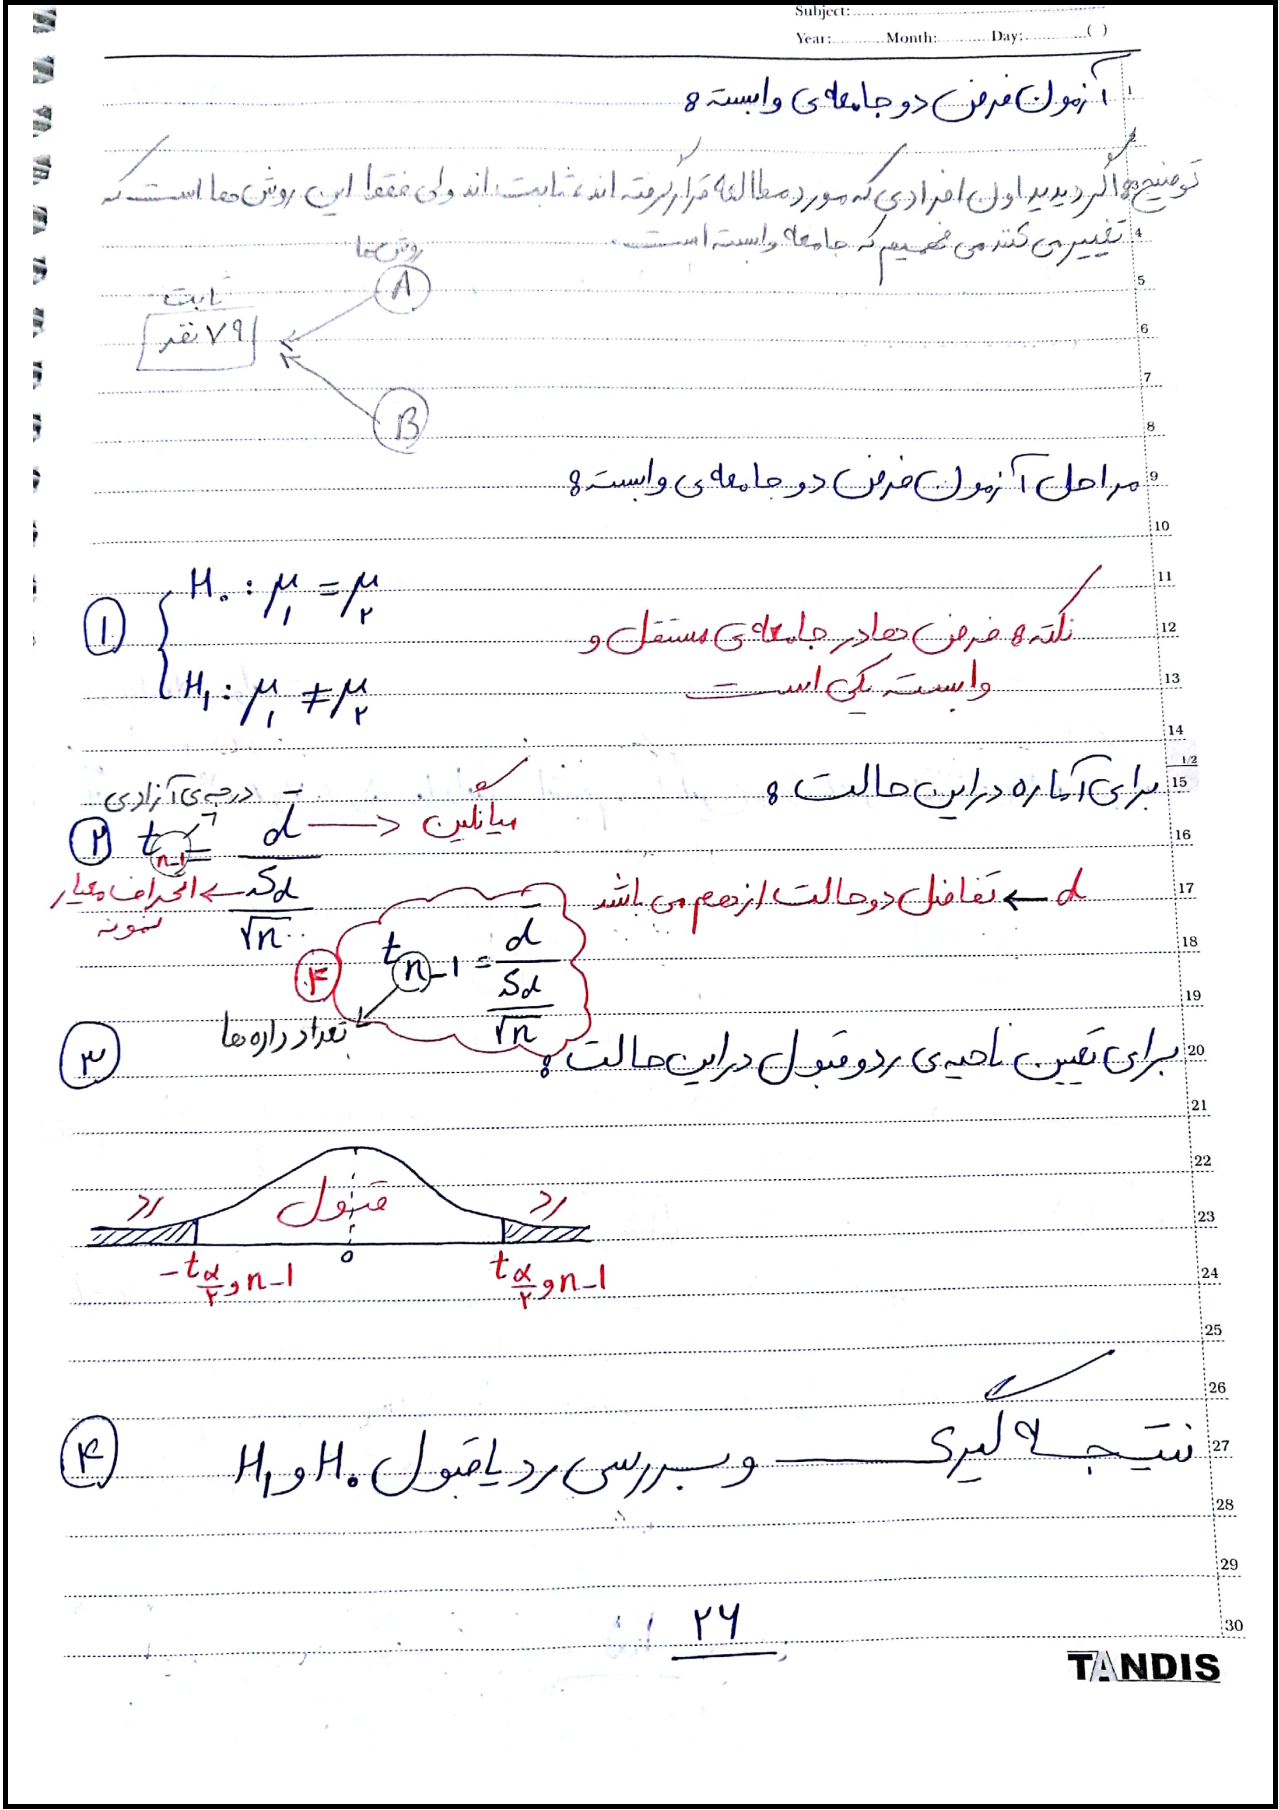 Subject:
Year: Month: Day: ( )
آزمون فرض دو جامعه ی وابسته :
توضیح : اگر دیدید اون افرادی که مورد مطالعه قرار گرفته اند، ثابت اند ولی فقط این روش ها است که
تغییر می کنند می فهمیم که جامعه وابسته است.
روش ها
A
ثابت
۷۹ نفر
B
مراحل آزمون فرض دو جامعه ی وابسته :
۱
H₀ : μ₁ = μ₂
نکته : فرض ها در جامعه ی مستقل و
وابسته یکی است
H₁ : μ₁ ≠ μ₂
برای آماره در این حالت :
درجه ی آزادی
۲ t n-1 = d̄ / (Sd / √n)
میانگین
انحراف معیار
نمونه
d ← تفاضل دو حالت از هم می باشد
۴ t n-1 = d̄ / (Sd / √n)
تعداد داده ها
۳ برای تعیین ناحیه ی رد و قبول در این حالت :
رد قبول رد
-t α/۲ و n-1 0 t α/۲ و n-1
۴ نتیجه گیری و بررسی رد یا قبول H₀ و H₁
۲۶
TANDIS
1
4
5
6
7
8
9
10
11
12
13
14
1/2
15
16
17
18
19
20
21
22
23
24
25
26
27
28
29
30